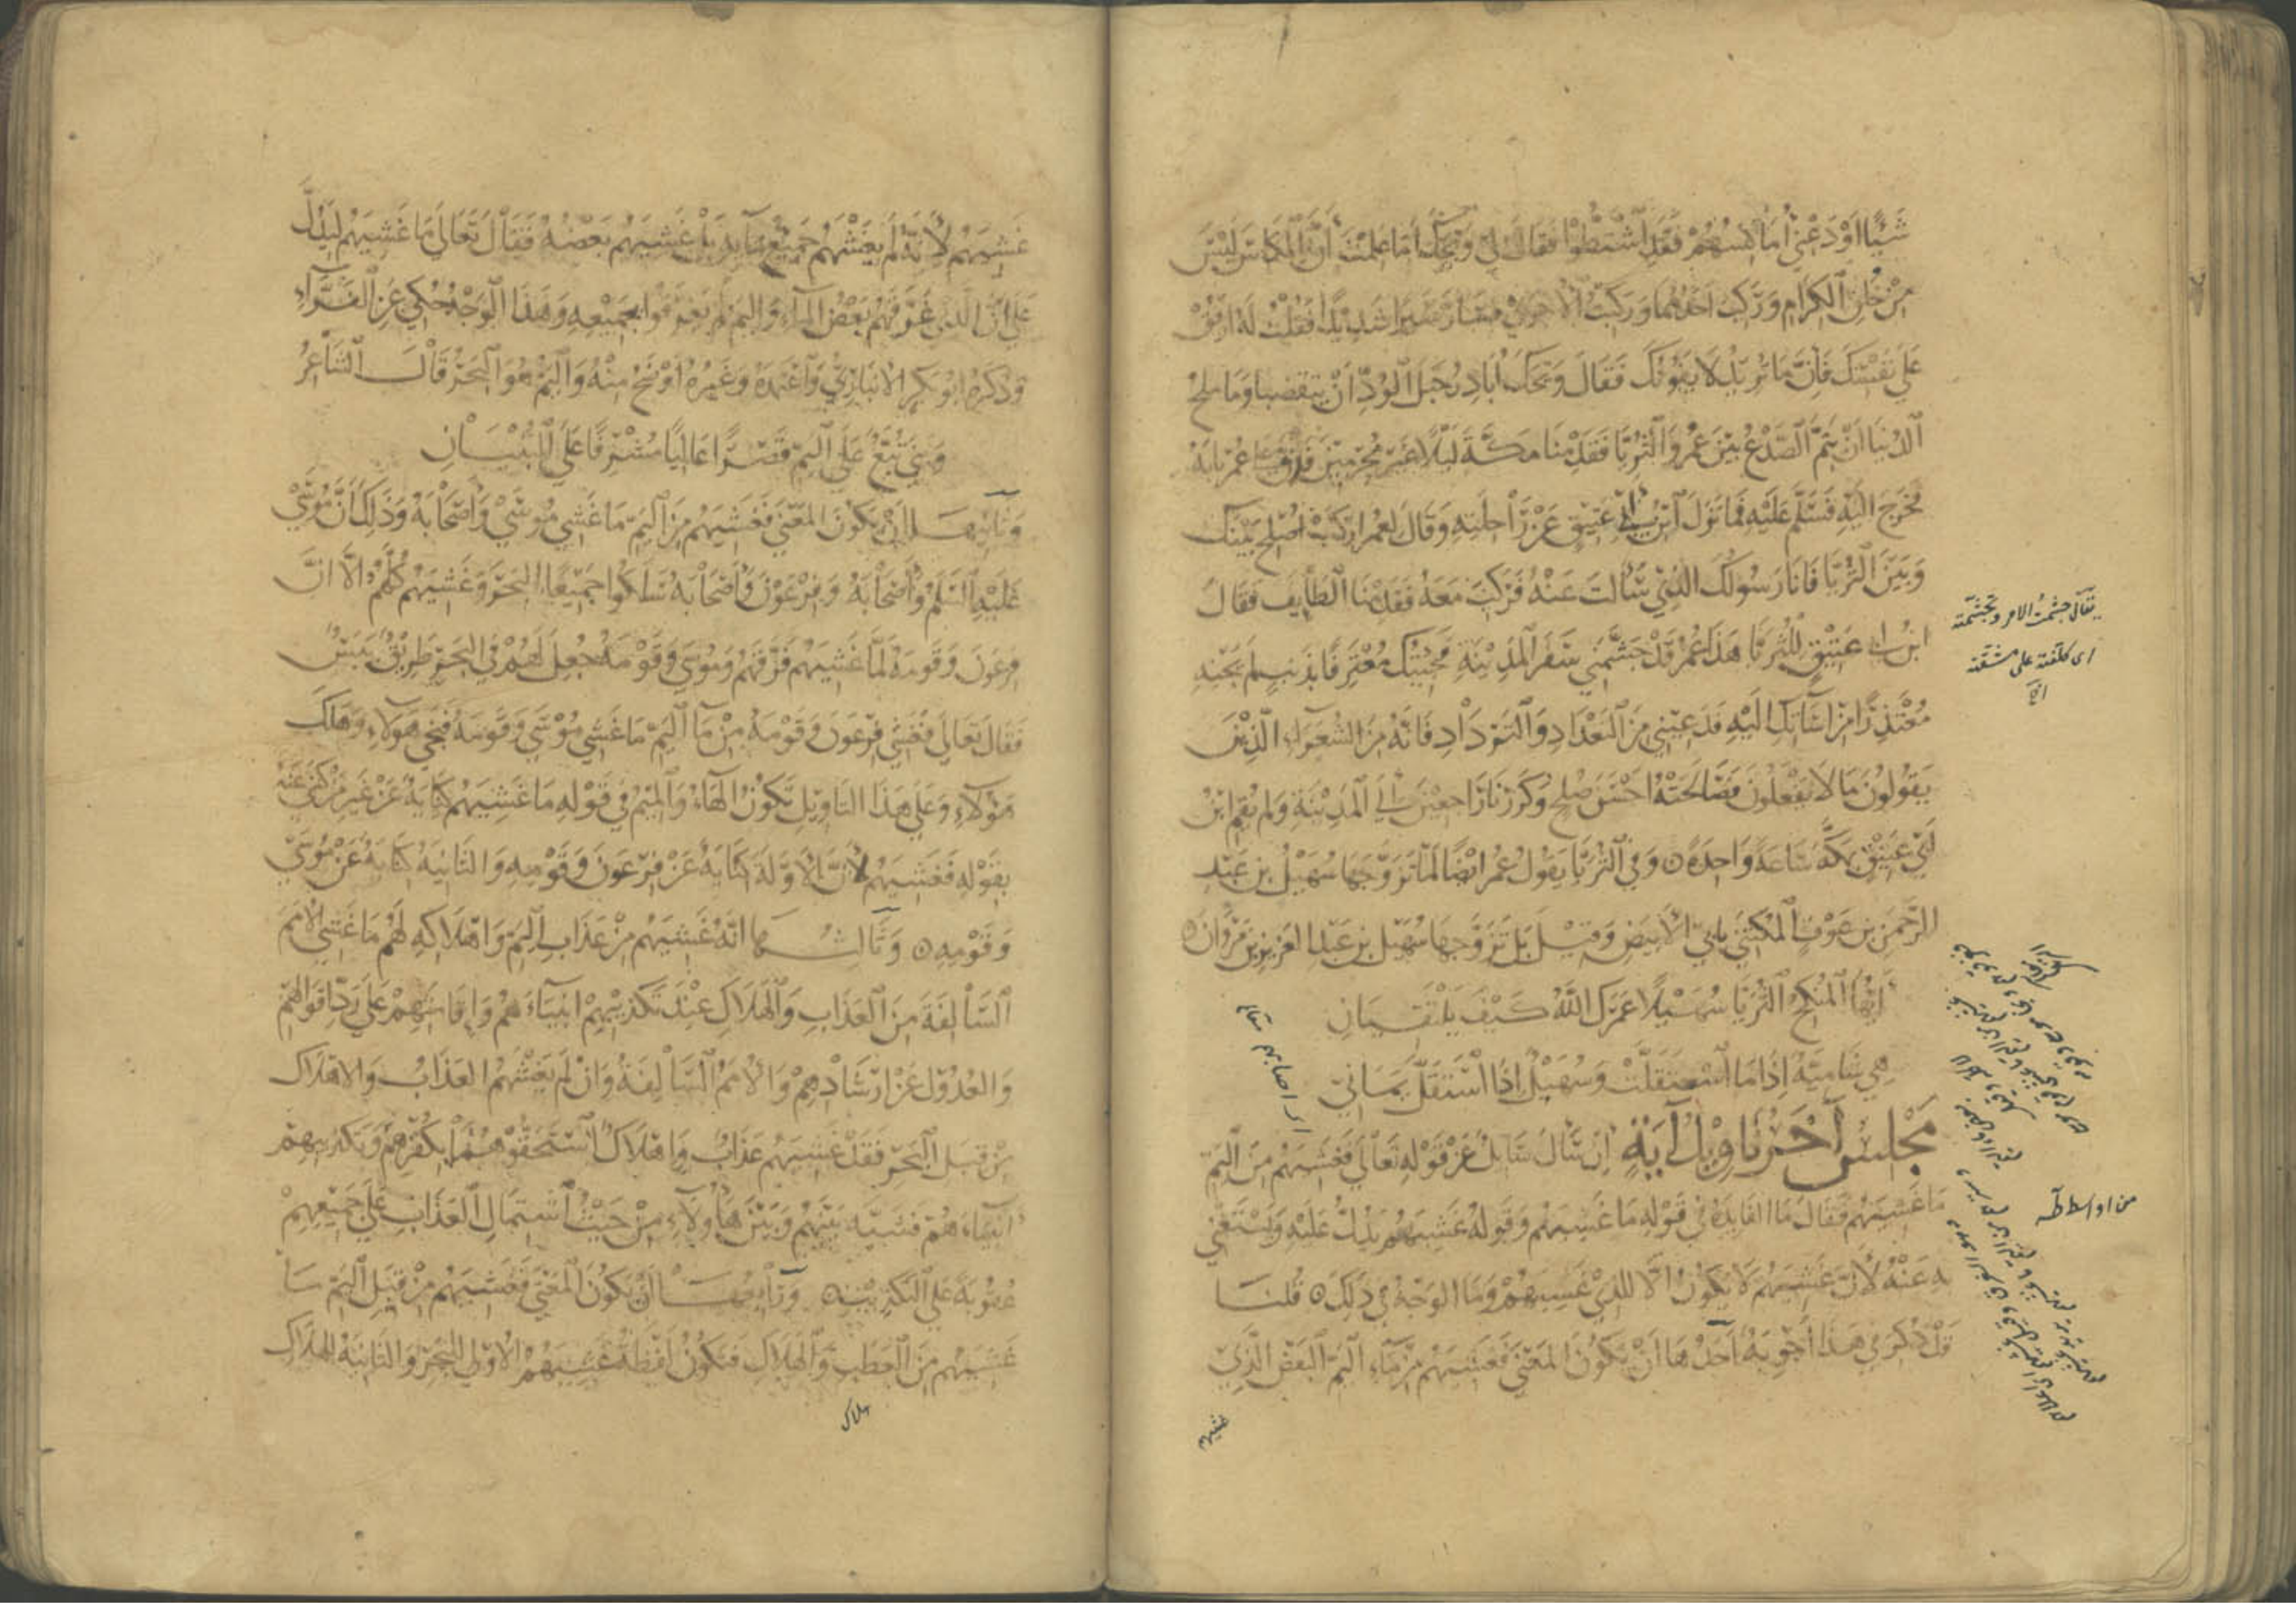 شَيْئًا اَوْ دَعْنِي اُمَاكِسُهُمْ فَقَدِ اشْتَطُّوا فَقَالَ لِي وَيْحَكَ اَمَا عَلِمْتَ اَنَّ الْمِكَاسَ لَيْسَ
مِنْ خُلُقِ الْكِرَامِ وَرَكِبَ اَحَدَهُمَا وَرَكِبْتُ الْاُخْرَى فَسَارَ سَيْرًا شَدِيْدًا فَقُلْتُ لَهُ ارْفُقْ
عَلَى نَفْسِكَ فَاِنَّ مَا تُرِيْدُ لَا يَفُوْتُكَ فَقَالَ وَيْحَكَ اُبَادِرُ حَبْلَ الْوُدِّ اَنْ يَتَقَضَّبَا وَمَا مِلْحُ
الدُّنْيَا اَنْ يَتِمَّ الصَّدْعُ بَيْنَ عُمَرَ وَالثُّرَيَّا فَقَدِمْنَا مَكَّةَ لَيْلًا غَيْرَ مُحْرِمَيْنِ فَدَقَّ عَلَى عُمَرَ بَابَهُ
فَخَرَجَ اِلَيْهِ فَسَلَّمَ عَلَيْهِ فَمَا نَزَلَ ابْنُ اَبِي عَتِيْقٍ عَنْ رَاحِلَتِهِ وَقَالَ لِعُمَرَ ارْكَبْ اُصْلِحْ بَيْنَكَ
وَبَيْنَ الثُّرَيَّا فَاَنَا رَسُولُكَ الَّذِي سَاَلْتَ عَنْهُ فَرَكِبَ مَعَهُ فَقَدِمْنَا الطَّايِفَ فَقَالَ
ابْنُ اَبِي عَتِيْقٍ لِلثُّرَيَّا هَذَا عُمَرُ قَدْ جَشَّمَنِي سَفَرَ الْمَدِيْنَةِ فَجِئْتُكِ مُعْتَرِفًا بِذَنْبٍ لَمْ يَجْنِهِ
مُعْتَذِرًا مِنْ اِسَاءَتِكِ اِلَيْهِ فَدَعِيْنِي مِنَ التَّعْدَادِ وَالتَّرْدَادِ فَاِنَّهُ مِنَ الشُّعَرَاءِ الَّذِيْنَ
يَقُولُونَ مَا لَا يَفْعَلُونَ فَصَالَحَتْهُ اَحْسَنَ صُلْحٍ وَكَرَرْنَا رَاجِعِيْنَ اِلَى الْمَدِيْنَةِ وَلَمْ يُقِمِ ابْنُ
اَبِي عَتِيْقٍ بِمَكَّةَ سَاعَةً وَاحِدَةً ٥ وَفِي الثُّرَيَّا يَقُولُ عُمَرُ اَيْضًا لَمَّا تَزَوَّجَهَا سُهَيْلُ بْنُ عَبْدِ
الرَّحْمَنِ بْنِ عَوْفٍ الْمُكَنَّى بِاَبِي الْاَبْيَضِ وَقِيْلَ بَلْ تَزَوَّجَهَا سُهَيْلُ بْنُ عَبْدِ الْعَزِيْزِ بْنِ مَرْوَانَ ٥
اَيُّهَا الْمُنْكِحُ الثُّرَيَّا سُهَيْلًا عَمْرَكَ اللهَ كَيْفَ يَلْتَقِيَانِ
هِيَ شَامِيَّةٌ اِذَا مَا اسْتَقَلَّتْ وَسُهَيْلٌ اِذَا اسْتَقَلَّ يَمَانِي
مَجْلِسٌ آخَرُ تَاوِيْلُ آيَةٍ اِنْ سَاَلَ سَايِلٌ عَنْ قَوْلِهِ تَعَالَى فَغَشِيَهُمْ مِنَ الْيَمِّ
مَا غَشِيَهُمْ فَقَالَ مَا الْفَايِدَةُ فِي قَوْلِهِ مَا غَشِيَهُمْ وَقَوْلُهُ غَشِيَهُمْ يَدُلُّ عَلَيْهِ وَيَسْتَغْنِي
بِهِ عَنْهُ لِاَنَّ غَشِيَهُمْ لَا يَكُونُ اِلَّا الَّذِي غَشِيَهُمْ وَمَا الْوَجْهُ فِي ذَلِكَ ٥ قُلْنَا
قَدْ ذُكِرَ فِي هَذَا اَجْوِبَةٌ اَحَدُهَا اَنْ يَكُونَ الْمَعْنَى فَغَشِيَهُمْ مِنْ مَاءِ الْيَمِّ الْبَعْضُ الَّذِي
غشيهم
يقال جشمت الامر وتجشمته
اى كلفته على مشقة
غَشِيَهُمْ لِاَنَّهُ لَمْ يَغْشَهُمْ جَمِيْعُ مَايِهِ بَلْ غَشِيَهُمْ بَعْضُهُ فَقَالَ تَعَالَى مَا غَشِيَهُمْ لِيَدُلَّ
عَلَى اَنَّ الَّذِي غَرَّقَهُمْ بَعْضُ الْمَاءِ وَاَنَّهُمْ لَمْ يَغْرَقُوا بِجَمِيْعِهِ وَهَذَا الْوَجْهُ حُكِيَ عَنِ الْفَرَّاءِ
وَذَكَرَهُ اَبُو بَكْرٍ الْاَنْبَارِيُّ وَاعْتَمَدَهُ وَغَيْرُهُ اَوْضَحُ مِنْهُ وَالْيَمُّ هُوَ الْبَحْرُ قَالَ الشَّاعِرُ
وَبَنَى تُبَّعٌ عَلَى الْيَمِّ قَصْرًا عَالِيًا مُشْرِفًا عَلَى الْبُنْيَانِ
وَثَانِيْهَا اَنْ يَكُونَ الْمَعْنَى فَغَشِيَهُمْ مِنَ الْيَمِّ مَا غَشِيَ مُوسَى وَاَصْحَابَهُ وَذَلِكَ اَنَّ مُوسَى
عَلَيْهِ السَّلَمُ وَاَصْحَابَهُ وَفِرْعَوْنَ وَاَصْحَابَهُ سَلَكُوا جَمِيْعًا الْبَحْرَ وَغَشِيَهُمْ كُلَّهُمْ اِلَّا اَنَّ
فِرْعَوْنَ وَقَوْمَهُ لَمَّا غَشِيَهُمْ غَرَّقَهُمْ وَمُوسَى وَقَوْمَهُ جُعِلَ لَهُمْ فِي الْبَحْرِ طَرِيْقٌ يَبَسٌ
فَقَالَ تَعَالَى فَغَشِيَ فِرْعَوْنَ وَقَوْمَهُ مِنْ مَاءِ الْيَمِّ مَا غَشِيَ مُوسَى وَقَوْمَهُ فَنَجَى هَؤُلَاءِ وَهَلَكَ
هَؤُلَاءِ وَعَلَى هَذَا التَّاوِيْلِ تَكُونُ الْهَاءُ وَالْمِيْمُ فِي قَوْلِهِ مَا غَشِيَهُمْ كِنَايَةً عَنْ غَيْرِ مَنْ كُنِيَ عَنْهُ
بِقَوْلِهِ فَغَشِيَهُمْ لِاَنَّ الْاَوَّلَةَ كِنَايَةٌ عَنْ فِرْعَوْنَ وَقَوْمِهِ وَالثَّانِيَةَ كِنَايَةٌ عَنْ مُوسَى
وَقَوْمِهِ ٥ وَثَالِثُهَا اَنَّهُ غَشِيَهُمْ مِنْ عَذَابِ الْيَمِّ وَاِهْلَاكِهِ لَهُمْ مَا غَشِيَ الْاُمَمَ
السَّالِفَةَ مِنَ الْعَذَابِ وَالْهَلَاكِ عِنْدَ تَكْذِيْبِهِمْ اَنْبِيَاءَهُمْ وَاِقَامَتِهِمْ عَلَى رَدِّ اَقْوَالِهِمْ
وَالْعُدُوْلِ عَنْ اِرْشَادِهِمْ وَالْاُمَمُ السَّالِفَةُ وَاِنْ لَمْ يَغْشَهُمُ الْعَذَابُ وَالْاِهْلَاكُ
مِنْ قِبَلِ الْبَحْرِ فَقَدْ غَشِيَهُمْ عَذَابٌ وَاِهْلَاكٌ اسْتَحَقُّوْهُمَا بِكُفْرِهِمْ وَتَكْذِيْبِهِمْ
اَنْبِيَاءَهُمْ فَشَبَّهَ بَيْنَهُمْ وَبَيْنَ هَاؤُلَاءِ مِنْ حَيْثُ اشْتِمَالِ الْعَذَابِ عَلَى جَمِيْعِهِمْ
عُقُوبَةً عَلَى التَّكْذِيْبِ ٥ وَرَابِعُهَا اَنْ يَكُونَ الْمَعْنَى فَغَشِيَهُمْ مِنْ قِبَلِ الْيَمِّ مَا
غَشِيَهُمْ مِنَ الْعَطَبِ وَالْهَلَاكِ فَتَكُونُ لَفْظَةُ غَشِيَهُمْ الْاُولَى لِلْبَحْرِ وَالثَّانِيَةُ لِلْهَلَاكِ